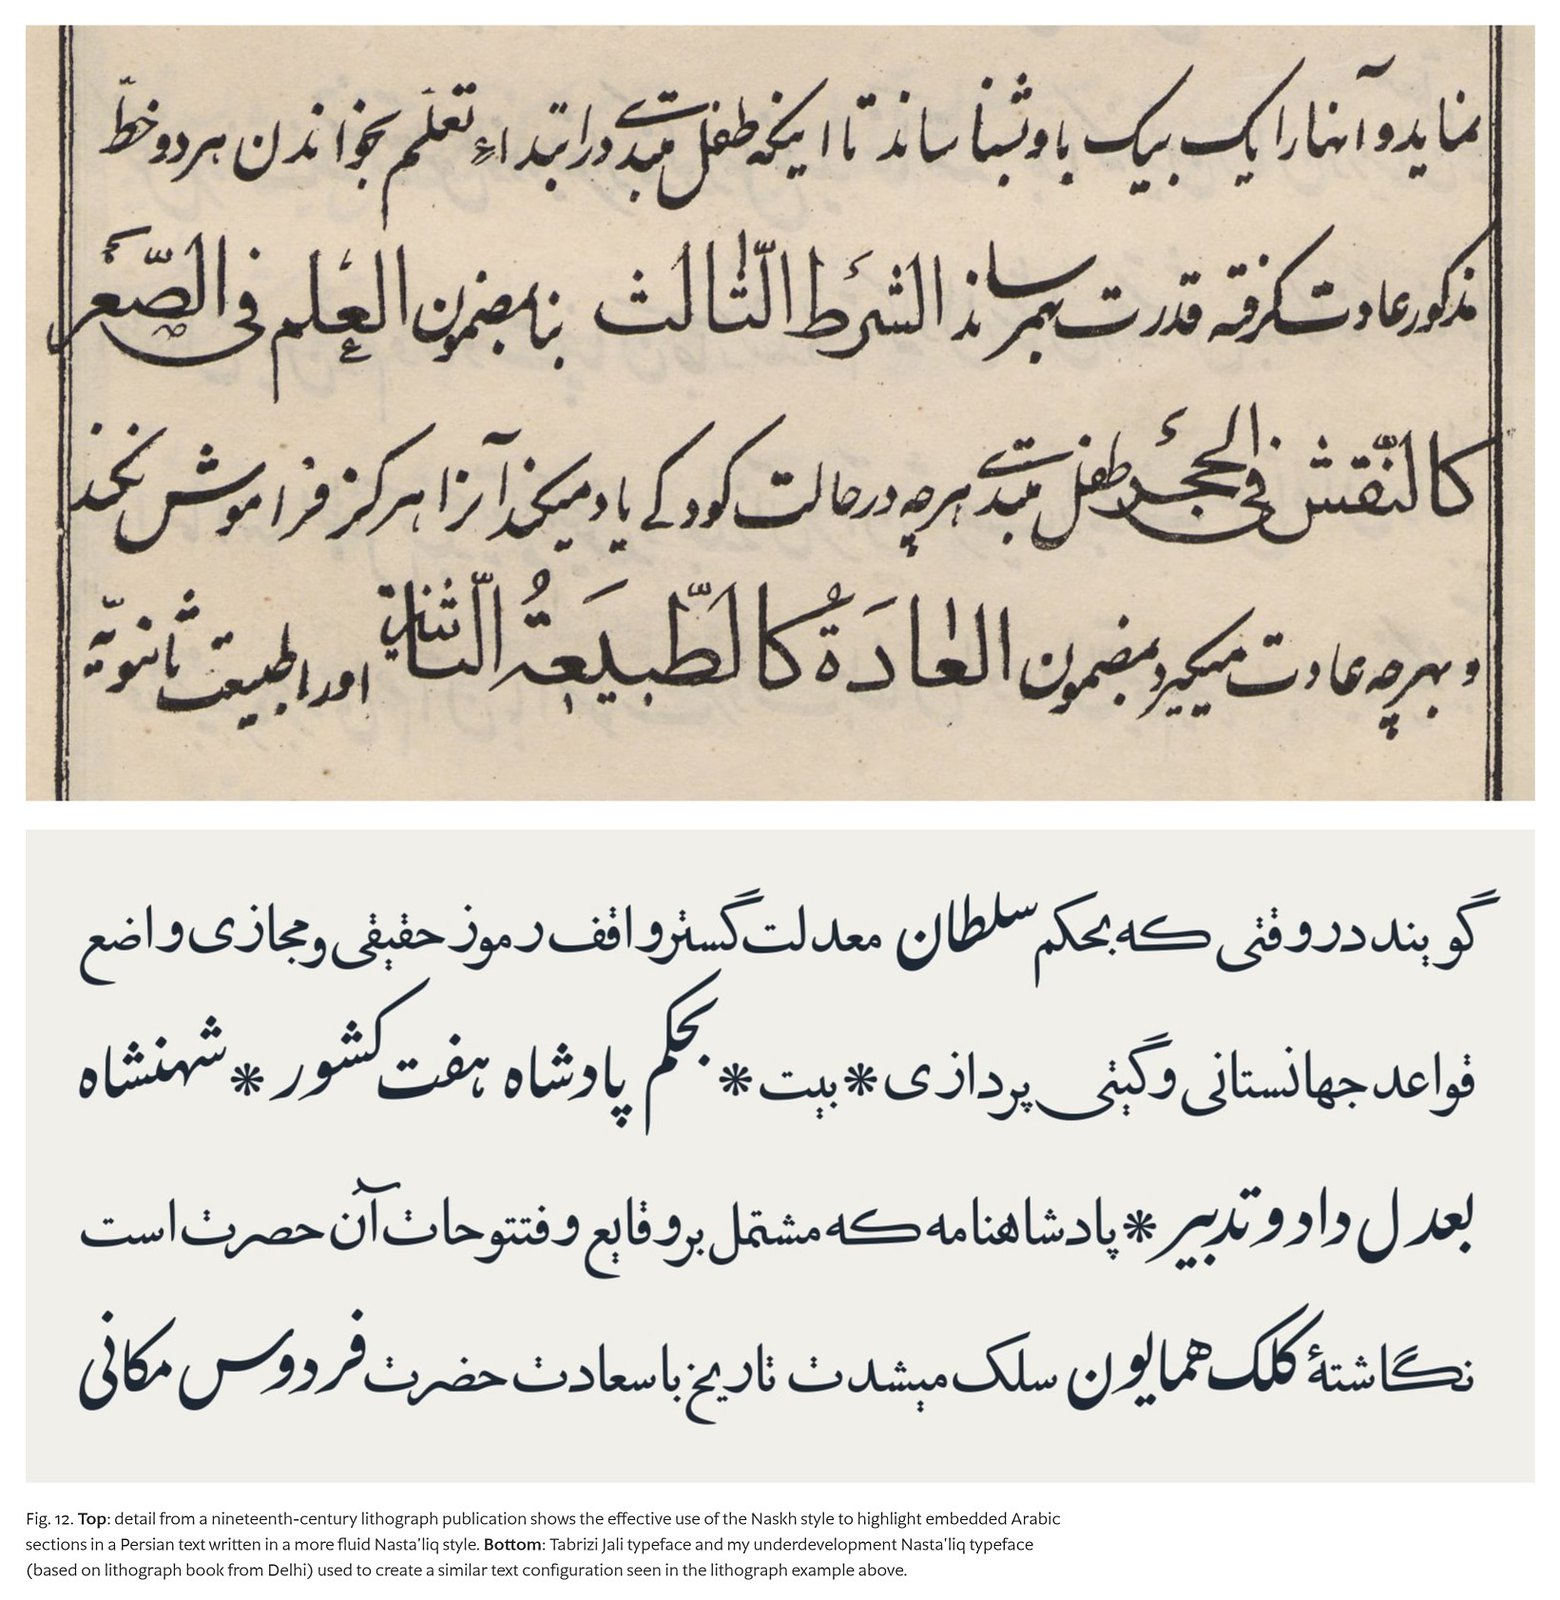 نماید و آنها را یک بیک باو بشناساند تا اینکه طفل مبتدے در ابتداءِ تعلّم بخواندن هر دو خطّ
مذکور عادت گرفته قدرت بهمرساند الشرط الثّالث بنا بمضمون العلم فی الصّغر
کالنّقش فی الحجر طفل مبتدے هرچه در حالت کودکے یاد میکند آنرا هرگز فراموش نکند
و بهرچه عادت میگیرد بمضمون العادَةُ کالطّبیعةُ الثّانیة اورا طبیعت ثانویّه
گویند در وقتی که بحکم سلطان معدلت گستر واقف رموز حقیقی و مجازی واضع
قواعد جهانستانی و گیتی پردازی * بیت * بحکم پادشاه هفت کشور * شهنشاه
بعدل داد و تدبیر * پادشاهنامه که مشتمل بر وقایع و فتتوحات آن حصرت است
نگاشتهٔ کلک همایون سلک میشدت تاریخ باسعادت حضرت فردوس مکانی
Fig. 12. Top: detail from a nineteenth-century lithograph publication shows the effective use of the Naskh style to highlight embedded Arabic
sections in a Persian text written in a more fluid Nasta'liq style. Bottom: Tabrizi Jali typeface and my underdevelopment Nasta'liq typeface
(based on lithograph book from Delhi) used to create a similar text configuration seen in the lithograph example above.